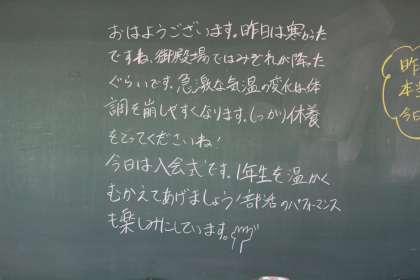 おはようございます。昨日は寒かった
ですね、御殿場ではみぞれが降った
ぐらいです。急激な気温の変化は体
調を崩しやすくなります。しっかり休養
をとってくださいね!
今日は入会式です。1年生を温かく
むかえてあげましょう!部活のパフォーマンス
も楽しみにしています。
昨
本当
今日